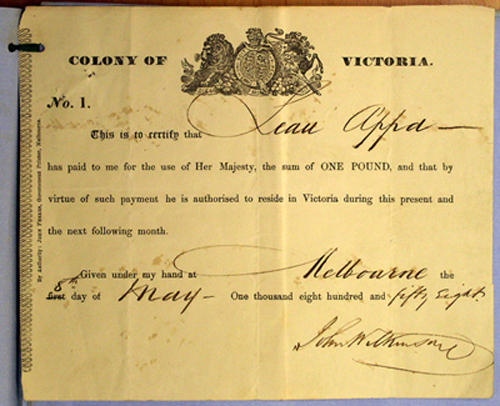 COLONY OF VICTORIA.
No. 1.
This is to certify that Leau Appa
has paid to me for the use of Her Majesty, the sum of ONE POUND, and that by
virtue of such payment he is authorised to reside in Victoria during this present and
the next following month.
Given under my hand at Melbourne the
8th first day of May One thousand eight hundred and fifty Eight.
John Wilkinson
By Authority: JOHN FERRES, Government Printer, Melbourne.